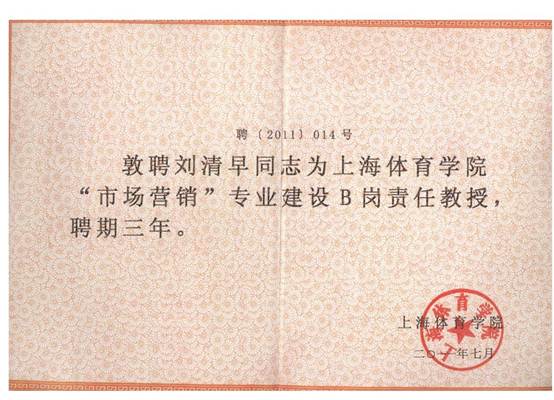 聘〔2011〕014号
敦聘刘清早同志为上海体育学院
“市场营销”专业建设B岗责任教授，
聘期三年。
上海体育学院
上海体育学院
二〇一一年七月